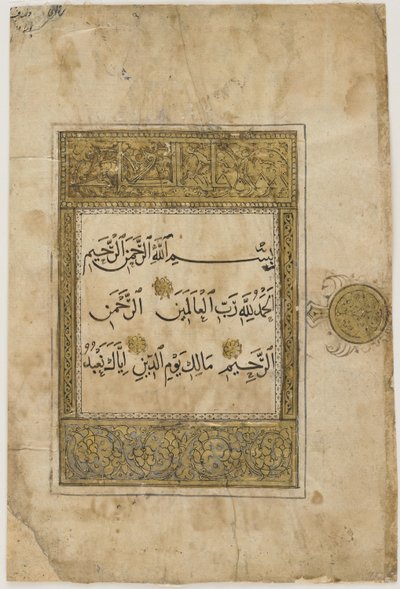 بِسْمِ ٱللَّهِ ٱلرَّحْمَٰنِ ٱلرَّحِيمِ
ٱلْحَمْدُ لِلَّهِ رَبِّ ٱلْعَالَمِينَ ٱلرَّحْمَٰنِ
ٱلرَّحِيمِ مَالِكِ يَوْمِ ٱلدِّينِ إِيَّاكَ نَعْبُدُ